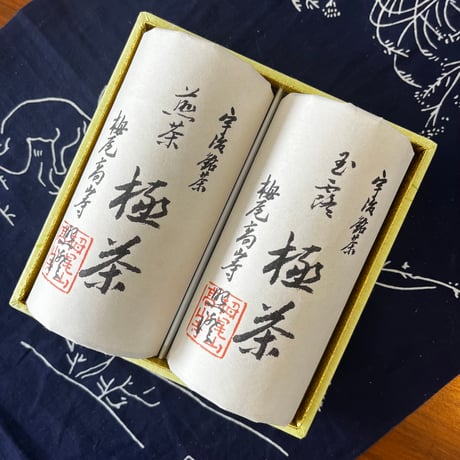 宇治銘茶
玉露
極茶
栂尾高山寺
宇治銘茶
煎茶
極茶
栂尾高山寺